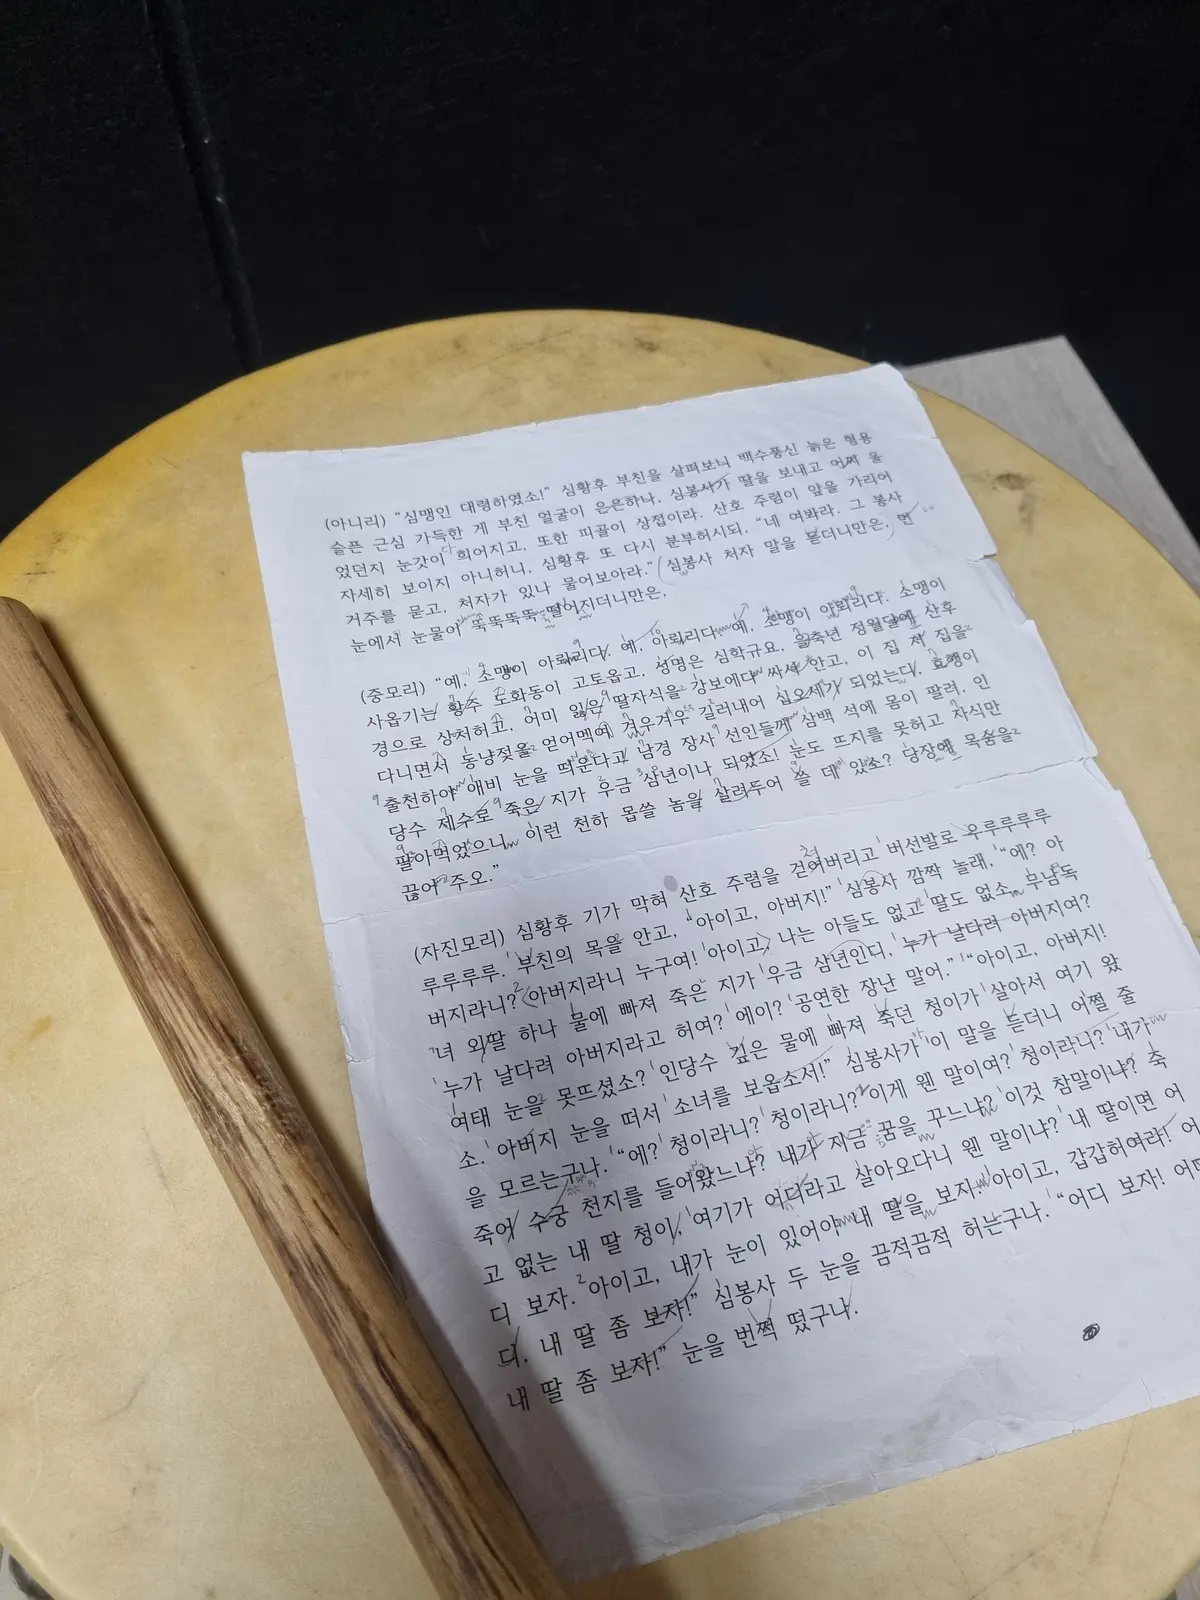 (아니리) “심맹인 대령하였소!” 심황후 부친을 살펴보니 백수풍신 늙은 형용
슬픈 근심 가득한 게 부친 얼굴이 은은하나, 심봉사가 딸을 보내고 어찌 울
었던지 눈갓이 희어지고, 또한 피골이 상접이라. 산호 주렴이 앞을 가리어
자세히 보이지 아니허니, 심황후 또 다시 분부허시되, “네 여봐라. 그 봉사
거주를 묻고, 처자가 있나 물어보아라.” (심봉사 처자 말을 듣더니만은, 먼
눈에서 눈물이 뚝뚝뚝뚝 떨어지더니만은,
(중모리) “예, 소맹이 아뢰리다. 예, 아뢰리다. 예, 소맹이 아뢰리다. 소맹이
사옵기는 황주 도화동이 고토옵고, 성명은 심학규요, 을축년 정월달에 산후
경으로 상처허고, 어미 잃은 딸자식을 강보에다 싸서 안고, 이 집 저 집을
다니면서 동냥젖을 얻어멕여 겨우겨우 길러내어 십오세가 되었는디, 효행이
출천하야 애비 눈을 띄운다고 남경 장사 선인들께 삼백 석에 몸이 팔려, 인
당수 제수로 죽은 지가 우금 삼년이나 되었소! 눈도 뜨지를 못허고 자식만
팔아먹었으니 이런 천하 몹쓸 놈을 살려두어 쓸 데 있소? 당장에 목숨을
끊어 주오.”
(자진모리) 심황후 기가 막혀 산호 주렴을 걷어버리고 버선발로 우루루루루
루루루루. 부친의 목을 안고, “아이고, 아버지!” 심봉사 깜짝 놀래, “에? 아
버지라니? 아버지라니 누구여! 아이고, 나는 아들도 없고 딸도 없소. 무남독
녀 외딸 하나 물에 빠져 죽은 지가 우금 삼년인디, 누가 날다려 아버지여?
누가 날다려 아버지라고 허여? 에이? 공연한 장난 말어.” “아이고, 아버지!
여태 눈을 못뜨셨소? 인당수 깊은 물에 빠져 죽던 청이가 살아서 여기 왔
소. 아버지 눈을 떠서 소녀를 보옵소서!” 심봉사가 이 말을 듣더니 어쩔 줄
을 모르는구나. “에? 청이라니? 청이라니? 이게 웬 말이여? 청이라니? 내가
죽어 수궁 천지를 들어왔느냐? 내가 지금 꿈을 꾸느냐? 이것 참말이냐? 죽
고 없는 내 딸 청이, 여기가 어디라고 살아오다니 웬 말이냐? 내 딸이면 어
디 보자. 아이고, 내가 눈이 있어야 내 딸을 보지. 아이고, 갑갑허여라! 어
디, 내 딸 좀 보자!” 심봉사 두 눈을 끔적끔적 허는구나. “어디 보자! 어디
내 딸 좀 보자!” 눈을 번쩍 떴구나.